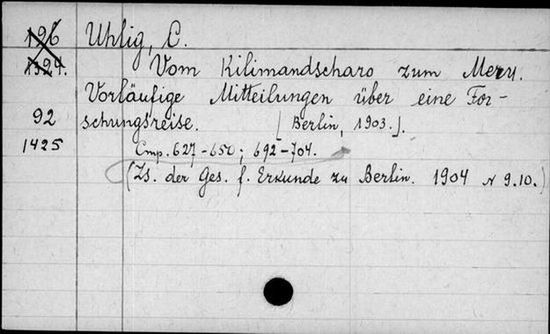 196 Uhlig, C.
1324. Vom Kilimandscharo zum Meru.
Vorläufige Mitteilungen über eine For-
92 schungsreise. [Berlin, 1903.].
1425 Стр. 627-650; 692-704.
(Zs. der Ges. f. Erkunde zu Berlin. 1904 N 9.10.)